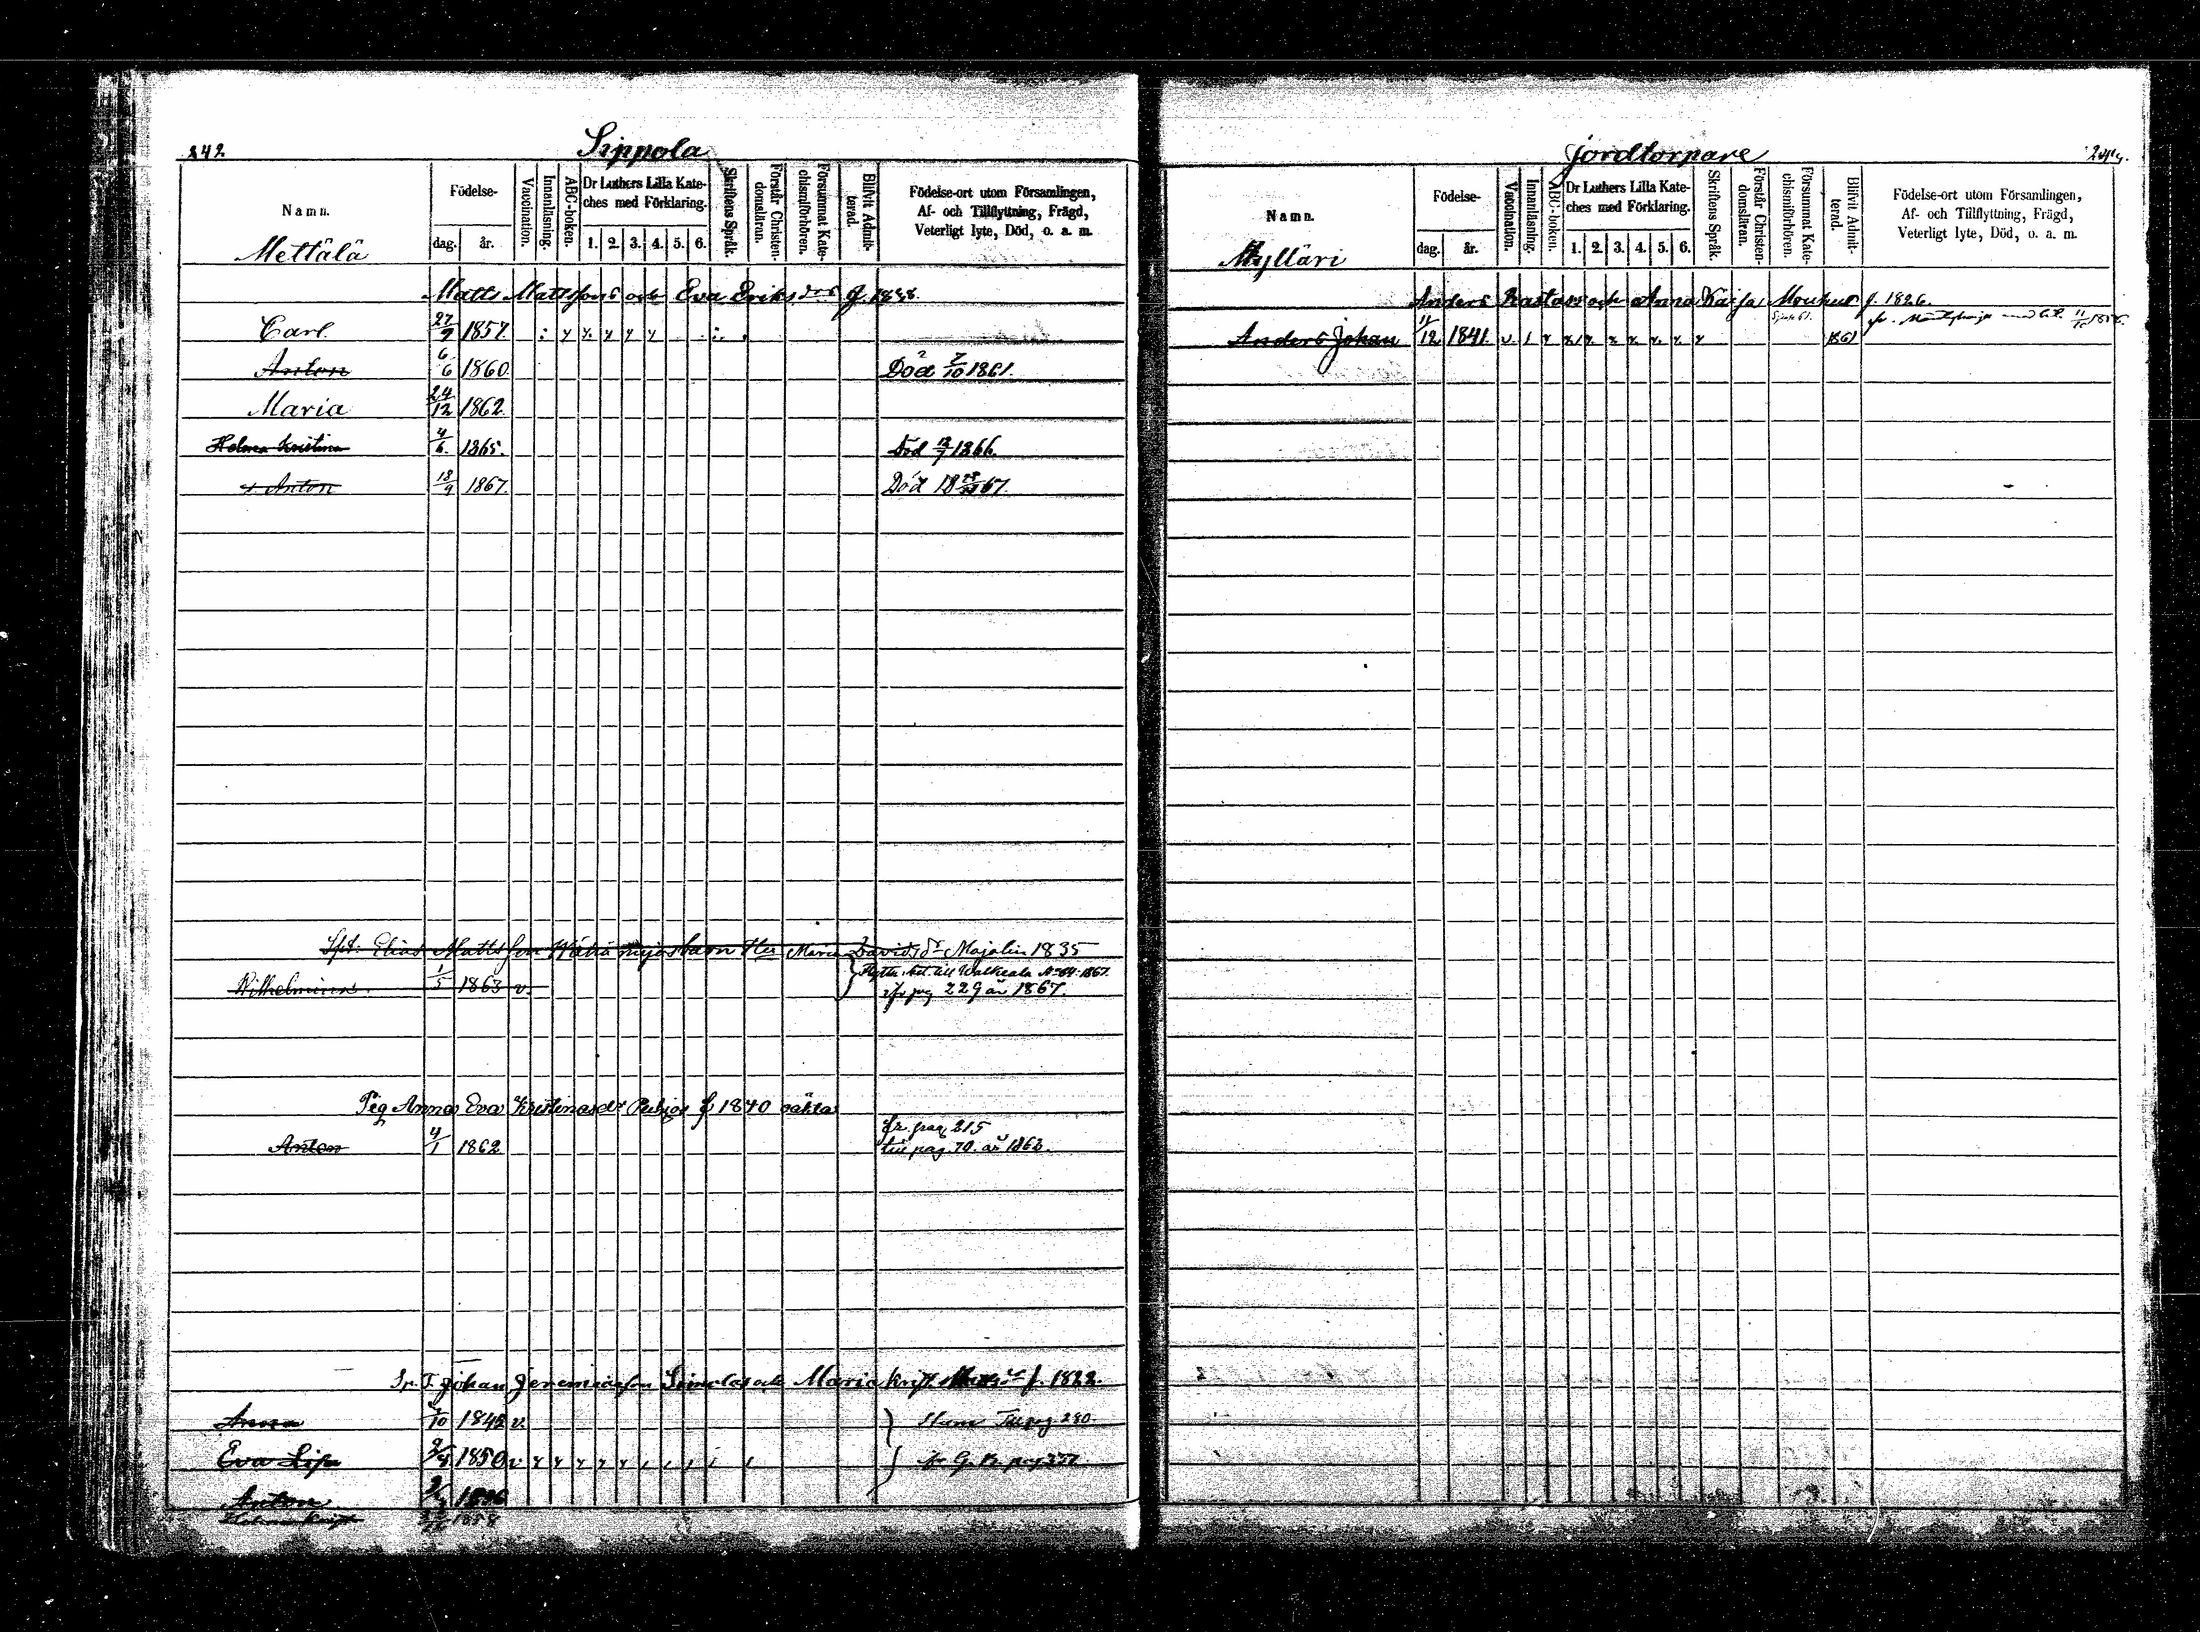 242
Sippola
Namn.
Födelse-
dag.
år.
Vaccination.
Innanläsning.
ABC-boken.
Dr Luthers Lilla Kate-
ches med Förklaring.
1. 2. 3. 4. 5. 6.
Skriftens Språk.
Förstår Christen-
domsläran.
Försummat Kate-
chismiförhören.
Blifvit Admit-
terad.
Födelse-ort utom Församlingen,
Af- och Tillflyttning, Frägd,
Veterligt lyte, Död, o. a. m.
Mettälä
Matts Mattssons och Eva Eriksdos f. 1838.
Carl 27/9 1857.
Anton 6/6 1860. Död 7/10 1861.
Maria 24/12 1862
Helena Kristina 4/6. 1865. Död 12/7 1866.
Anton 13/9 1867. Död 18 67.
Elias Mattsson Maria Davidsdr Majalin 1835
Wilhelmina. 1/5 1863 v. till Walkeala No 64. 1867.
pag 229 år 1867.
Pig Anna Eva Kristinasdr f 1840 oäkta
Anton 4/1 1862 fr. pag 215
till pag. 70. år 1863.
Johan Jeremiasson och Maria Krist. f. 1822.
Anna /10 1842 v. Till pag 280.
Eva Lisa 1850 v pag
Anton
1858
Jordtorpare
Namn.
Födelse-
dag.
år.
Vaccination.
Innanläsning.
ABC-boken.
Dr Luthers Lilla Kate-
ches med Förklaring.
1. 2. 3. 4. 5. 6.
Skriftens Språk.
Förstår Christen-
domsläran.
Försummat Kate-
chismiförhören.
Blifvit Admit-
terad.
Födelse-ort utom Församlingen,
Af- och Tillflyttning, Frägd,
Veterligt lyte, Död, o. a. m.
Mylläri
Anders Rastas och Anna Kajsa f. 1826.
Anders Johan 11/12 1841. v 1861